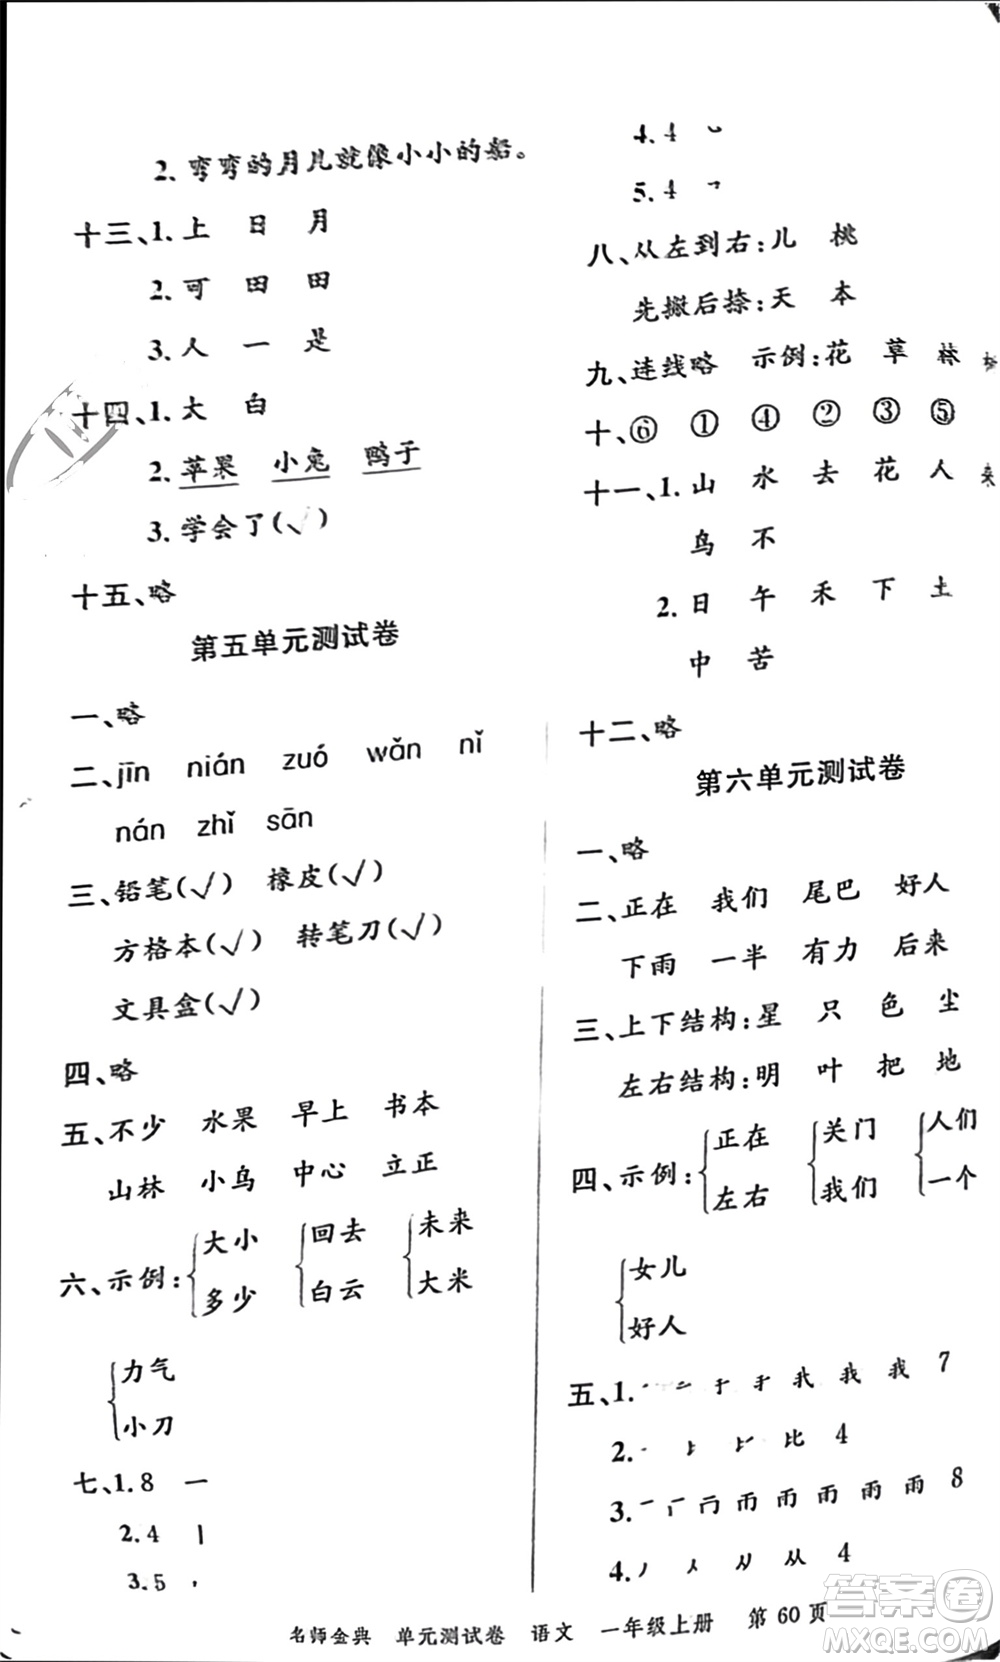 2. 弯弯的月儿就像小小的船。
十三、1. 上 日 月
2. 可 田 田
3. 人 一 是
十四、1. 大 白
2. 苹果 小兔 鸭子
3. 学会了(√)
十五、略
第五单元测试卷
一、略
二、jīn nián zuó wǎn nǐ
nán zhǐ sān
三、铅笔(√) 橡皮(√)
方格本(√) 转笔刀(√)
文具盒(√)
四、略
五、不少 水果 早上 书本
山林 小鸟 中心 立正
六、示例: 大小 多少 回去 白云 未来 大米
力气 小刀
七、1. 8 一
2. 4 丨
3. 5 丶
4. 4 ㇃
5. 4 ㇖
八、从左到右: 儿 桃
先撇后捺: 天 本
九、连线略 示例: 花 草 林
十、⑥ ① ④ ② ③ ⑤
十一、1. 山 水 去 花 人 来
鸟 不
2. 日 午 禾 下 土
中 苦
十二、略
第六单元测试卷
一、略
二、正在 我们 尾巴 好人
下雨 一半 有力 后来
三、上下结构: 星 只 色 尘
左右结构: 明 叶 把 地
四、示例: 正在 左右 关门 我们 人们 一个
女儿 好人
五、1. 我 7
2. 比 4
3. 雨 8
4. 丿 人 从 从 4
名师金典 单元测试卷 语文 一年级上册 第60页
答案圈
MXQE.COM